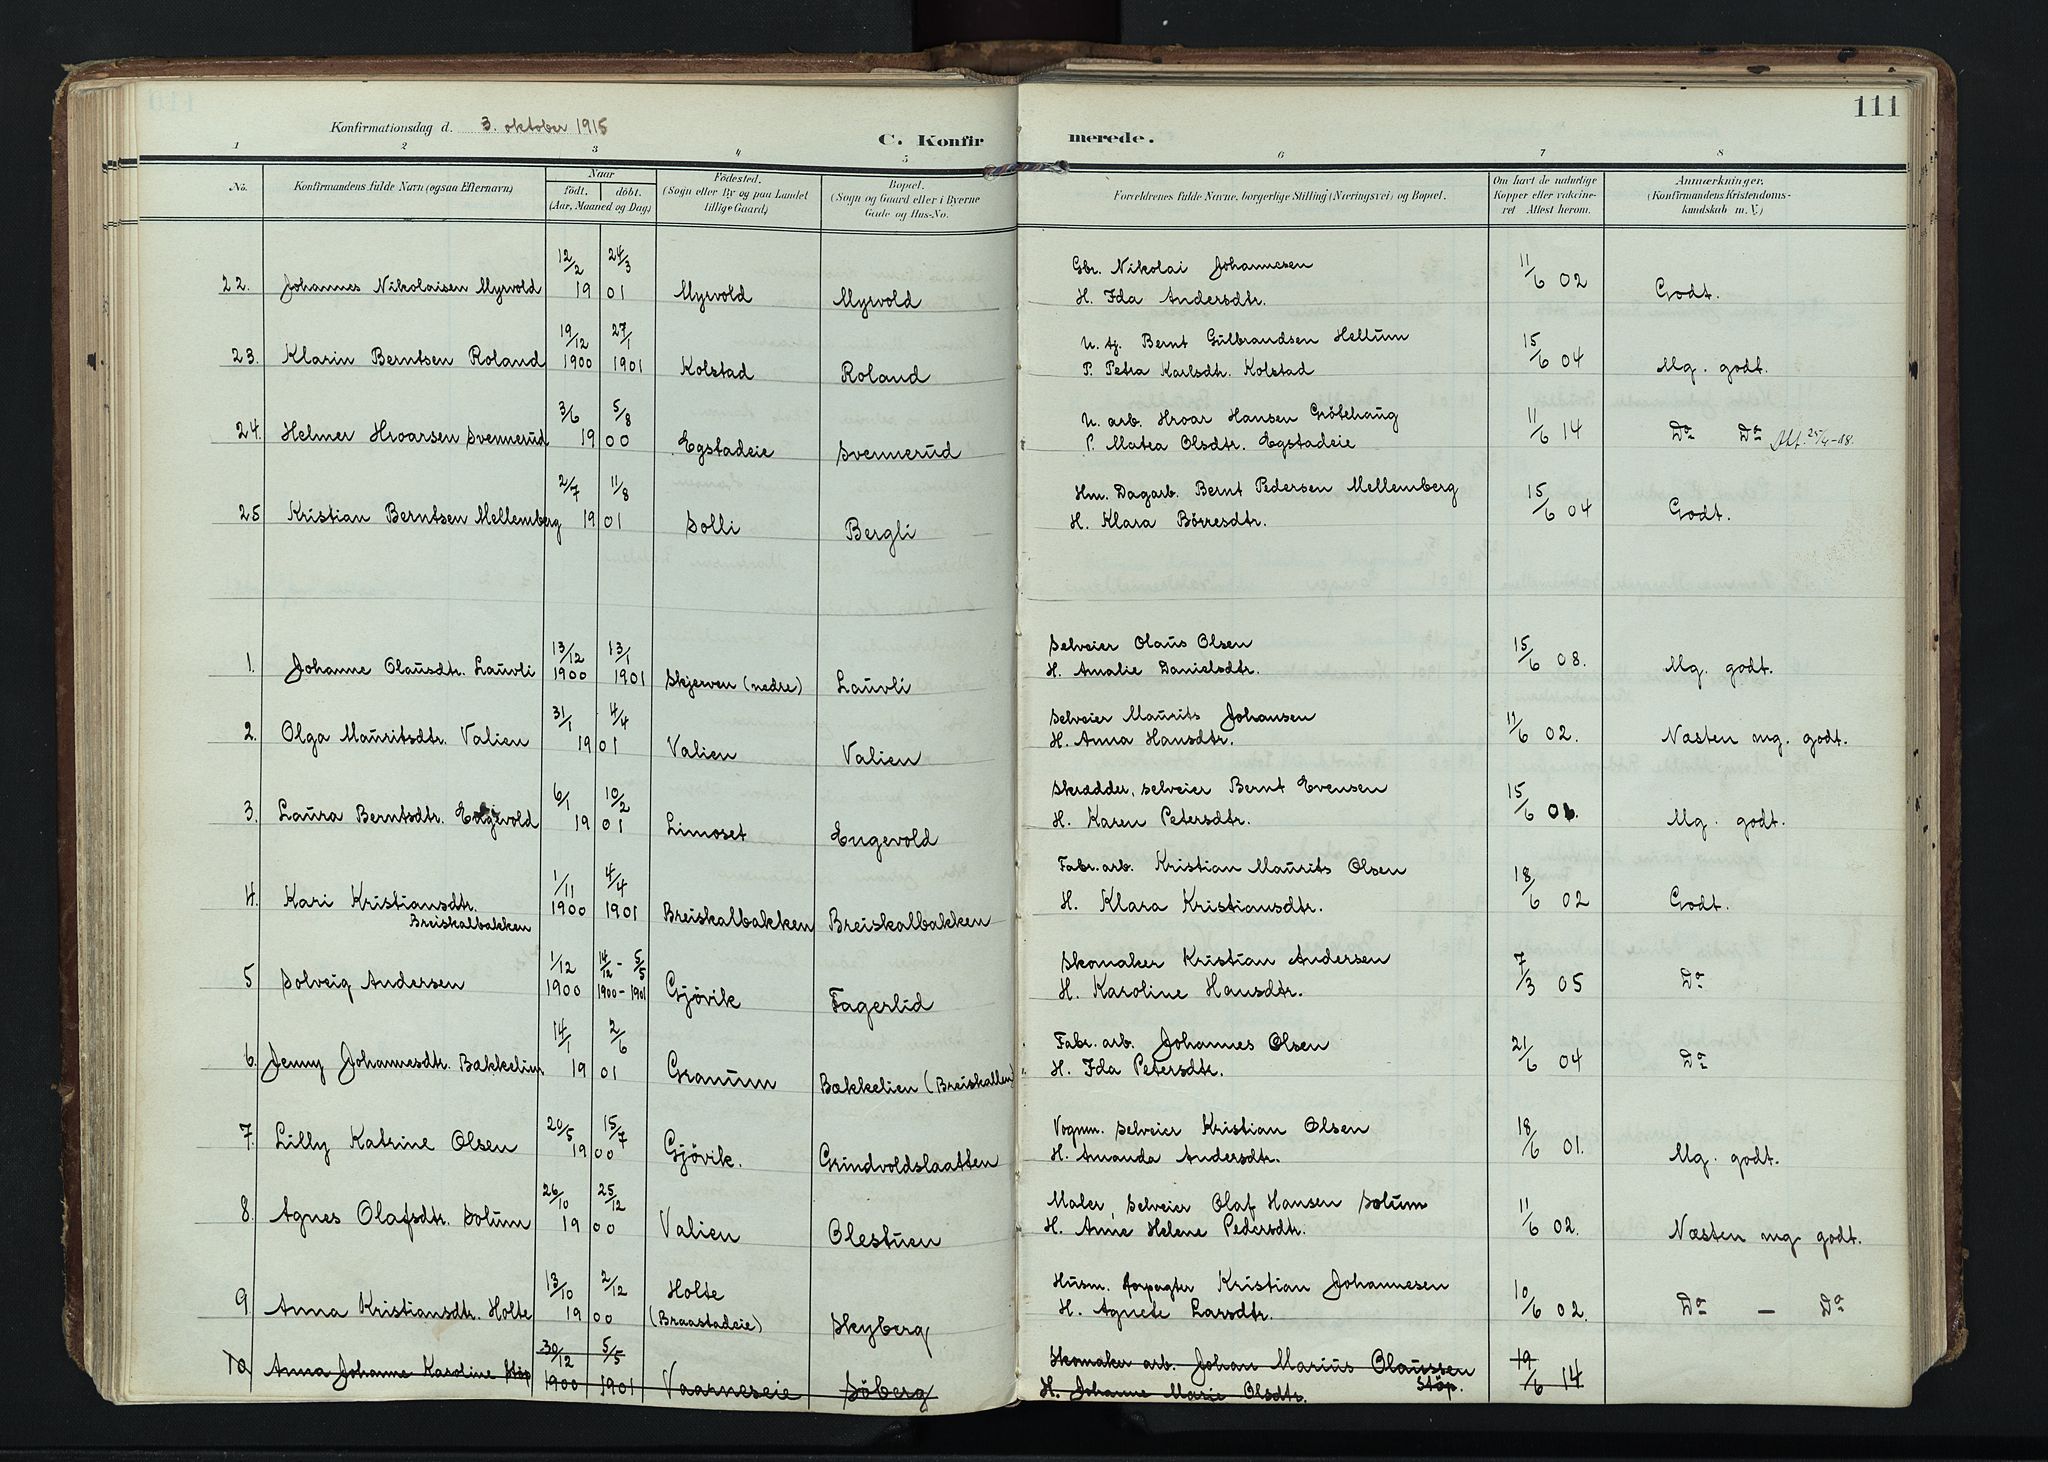 111
Konfirmationsdag d. 3. oktober 1915
C. Konfirmerede.
1 2 3 4 5 6 7 8
No. Konfirmandens fulde Navn (ogsaa Efternavn) Naar født. døbt. (Aar, Maaned og Dag) Fødested. (Sogn eller By og paa Landet tillige Gaard) Bopæl. (Sogn og Gaard eller i Byerne Gade og Hus-No. Forældrenes fulde Navne, borgerlige Stilling (Næringsvei) og Bopæl. Om havt de naturlige Kopper eller vaccineret Attest herom. Anmærkninger. (Konfirmandens Kristendomskundskab m. V.)
12/2 24/3 Gbr. Nikolai Johannesen 11/6 02
22. Johannes Nikolaisen Myrvold 19 01 Myrvold Myrvold H. Ida Andersdtr. Godt.
19/12 27/1 U. gj. Bernt Gulbrandsen Hellum 15/6 04
23. Klarin Berntsen Roland 1900 1901 Kolstad Roland P. Petra Karlsdtr. Kolstad Mg. godt.
3/6 5/8 U. arb. Hroar Hansen Grötehaug 11/6 14
24. Helmer Hroarsen Svennerud 19 00 Egstadeie Svennerud P. Matea Olsdtr. Egstadeie Do Do Att. 25/4-18.
2/7 11/8 Hm. Dagarb. Bernt Pedersen Mellemberg 15/6 04
25 Kristian Berntsen Mellemberg 19 01 Solli Bergli H. Klara Börresdtr. Godt.
13/12 13/1 Selveier Olaus Olsen 15/6 08.
1. Johanne Olausdtr. Lauvli 1900 1901 Skjerven (nedre) Lauvli H. Amalie Danielsdtr. Mg. godt.
31/1 4/4 Selveier Maurits Johansen 11/6 02.
2. Olga Mauritsdtr. Valien 19 01 Valien Valien H. Anna Hansdtr. Næsten mg. godt.
6/1 10/2 Skrædder, selveier Bernt Evensen 15/6
3. Laura Berntsdtr. Engevold 19 01 Limoset Engevold H. Karen Petersdtr. Mg. godt.
1/11 4/4 Fabr. arb. Kristian Maurits Olsen 18/6 02
4. Kari Kristiansdtr. 1900 1901 Breiskalbakken Breiskalbakken H. Klara Kristiansdtr. Godt.
Breiskalbakken
1/12 14/12 - 5/5 Skomaker Kristian Andersen 7/3 05
5 Solveig Andersen 1900 1900-1901 Gjövik Fagerlid H. Karoline Hansdtr. Do
14/1 2/6 Fabr. arb. Johannes Olsen 21/6 04
6. Jenny Johannesdtr. Bækkelien 19 01 Granum Bækkelien (Breiskallen) H. Ida Petersdtr. Do
20/5 15/7 Vognm. selveier Kristian Olsen 18/6 01.
7. Lilly Katrine Olsen 19 00 Gjövik. Grindvoldslaatten H. Amanda Andersdtr. Mg. godt.
26/10 25/12 Maler, selveier Olaf Hansen Solum 11/6 02.
8. Agnes Olafsdtr. Solum 19 00 Valien Olestuen H. Anne Helene Pedersdtr. Næsten mg godt.
13/10 2/12 Holte Husm. forpagter Kristian Johannesen 10/6 02.
9. Anna Kristiansdtr. Holte 19 00 (Braastadeie) Skyberg H. Agnete Larsdtr. Do - Do
30/12 5/5 Skomaker arb. Johan Marius Olaussen Stöp. 19/6 14
10 Anna Johanne Karoline Stöp 1900 1901 Vaarneseie Söberg H. Johanne Marie Olsdtr.